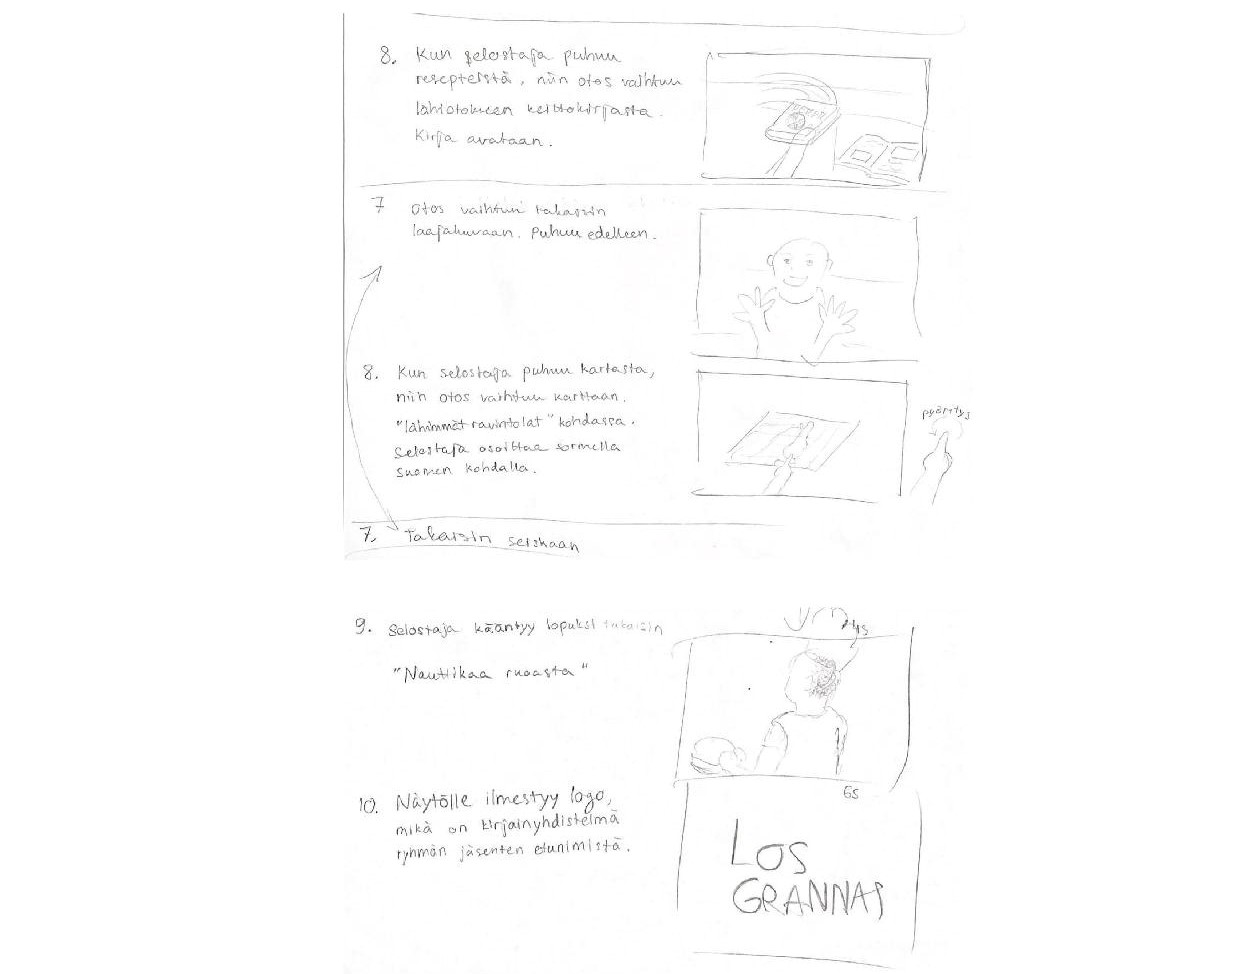 8. Kun selostaja puhuu
resepteistä, niin otos vaihtuu
lähiotokseen keittokirjasta.
Kirja avataan.
7 Otos vaihtuu takaisin
laajakuvaan. Puhuu edelleen.
8. Kun selostaja puhuu kartasta,
niin otos vaihtuu karttaan.
"lähimmät ravintolat" kohdassa.
Selostaja osoittaa sormella
Suomen kohdalla.
pyöritys
7. Takaisin seiskaan
9. Selostaja kääntyy lopuksi takaisin
"Nauttikaa ruoasta"
10. Näytölle ilmestyy logo,
mikä on kirjainyhdistelmä
ryhmän jäsenten etunimistä.
LOS
GRANNAS